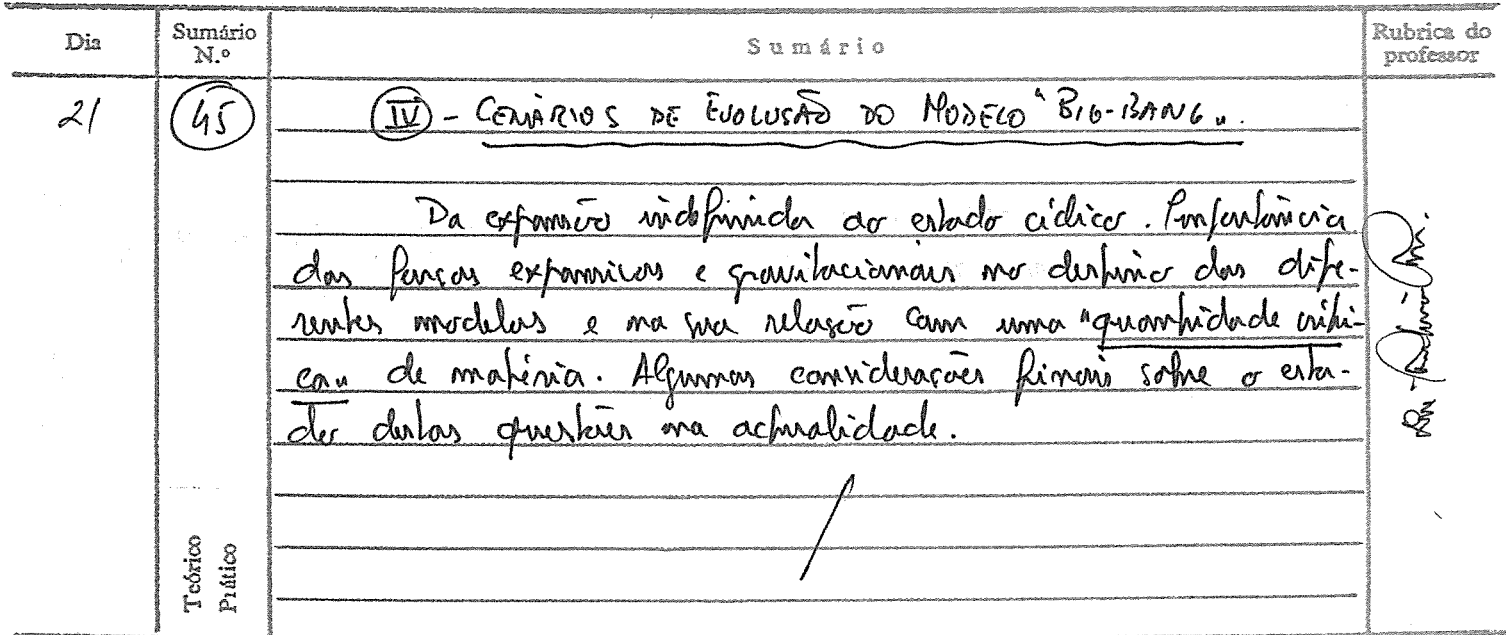 Dia Sumário N.º Sumário Rubrica do professor
21 45 IV - CENÁRIOS DE EVOLUSÃO DO MODELO "BIG-BANG".
Da expansão indefinida ao estado cíclico. Importância
das forças expansivas e gravitacionais no destino dos dife-
rentes modelos e na sua relação com uma "quantidade críti-
ca" de matéria. Algumas considerações finais sobre o esta-
do destas questões na actualidade.
Teórico
Prático